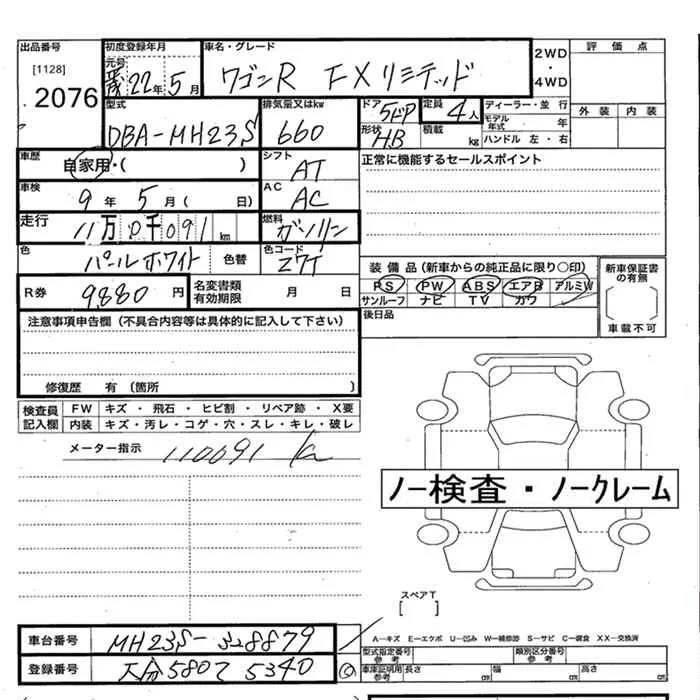 出品番号 初度登録年月 車名・グレード 2WD・4WD 評価点
[1128] 元号 22年5月 ワゴンR FXリミテッド
2076 型式 排気量又はkw ドア 5ドア 定員 4人 ディーラー・並行 外装 内装
DBA-MH23S 660 形状 HB 積載 kg モデル年式 年
ハンドル 左・右
車歴 自家用・( ) シフト AT 正常に機能するセールスポイント
車検 9年 5月( 日) AC AC
走行 11万0千091km 燃料 ガソリン
色 パールホワイト 色替 色コード Z7T
装備品(新車からの純正品に限り○印) 新車保証書の有無
R券 9880円 名変書類有効期限 月 日 PS PW ABS エアB アルミW
サンルーフ ナビ TV カワ
注意事項申告欄(不具合内容等は具体的に記入して下さい) 後日品 車載不可
修復歴 有(箇所 )
検査員記入欄 FW キズ・飛石・ヒビ割・リペア跡・X要
内装 キズ・汚レ・コゲ・穴・スレ・キレ・破レ
メーター指示 110091 km
ノー検査・ノークレーム
スペアT
[ ]
車台番号 MH23S-328879 A-キズ E-エクボ U-凹み W-補修跡 S-サビ C-腐食 XX-交換済
型式指定番号 参考 類別区分番号 参考
登録番号 大分580 5340 車庫証明用参考 長さ cm 幅 cm 高さ cm